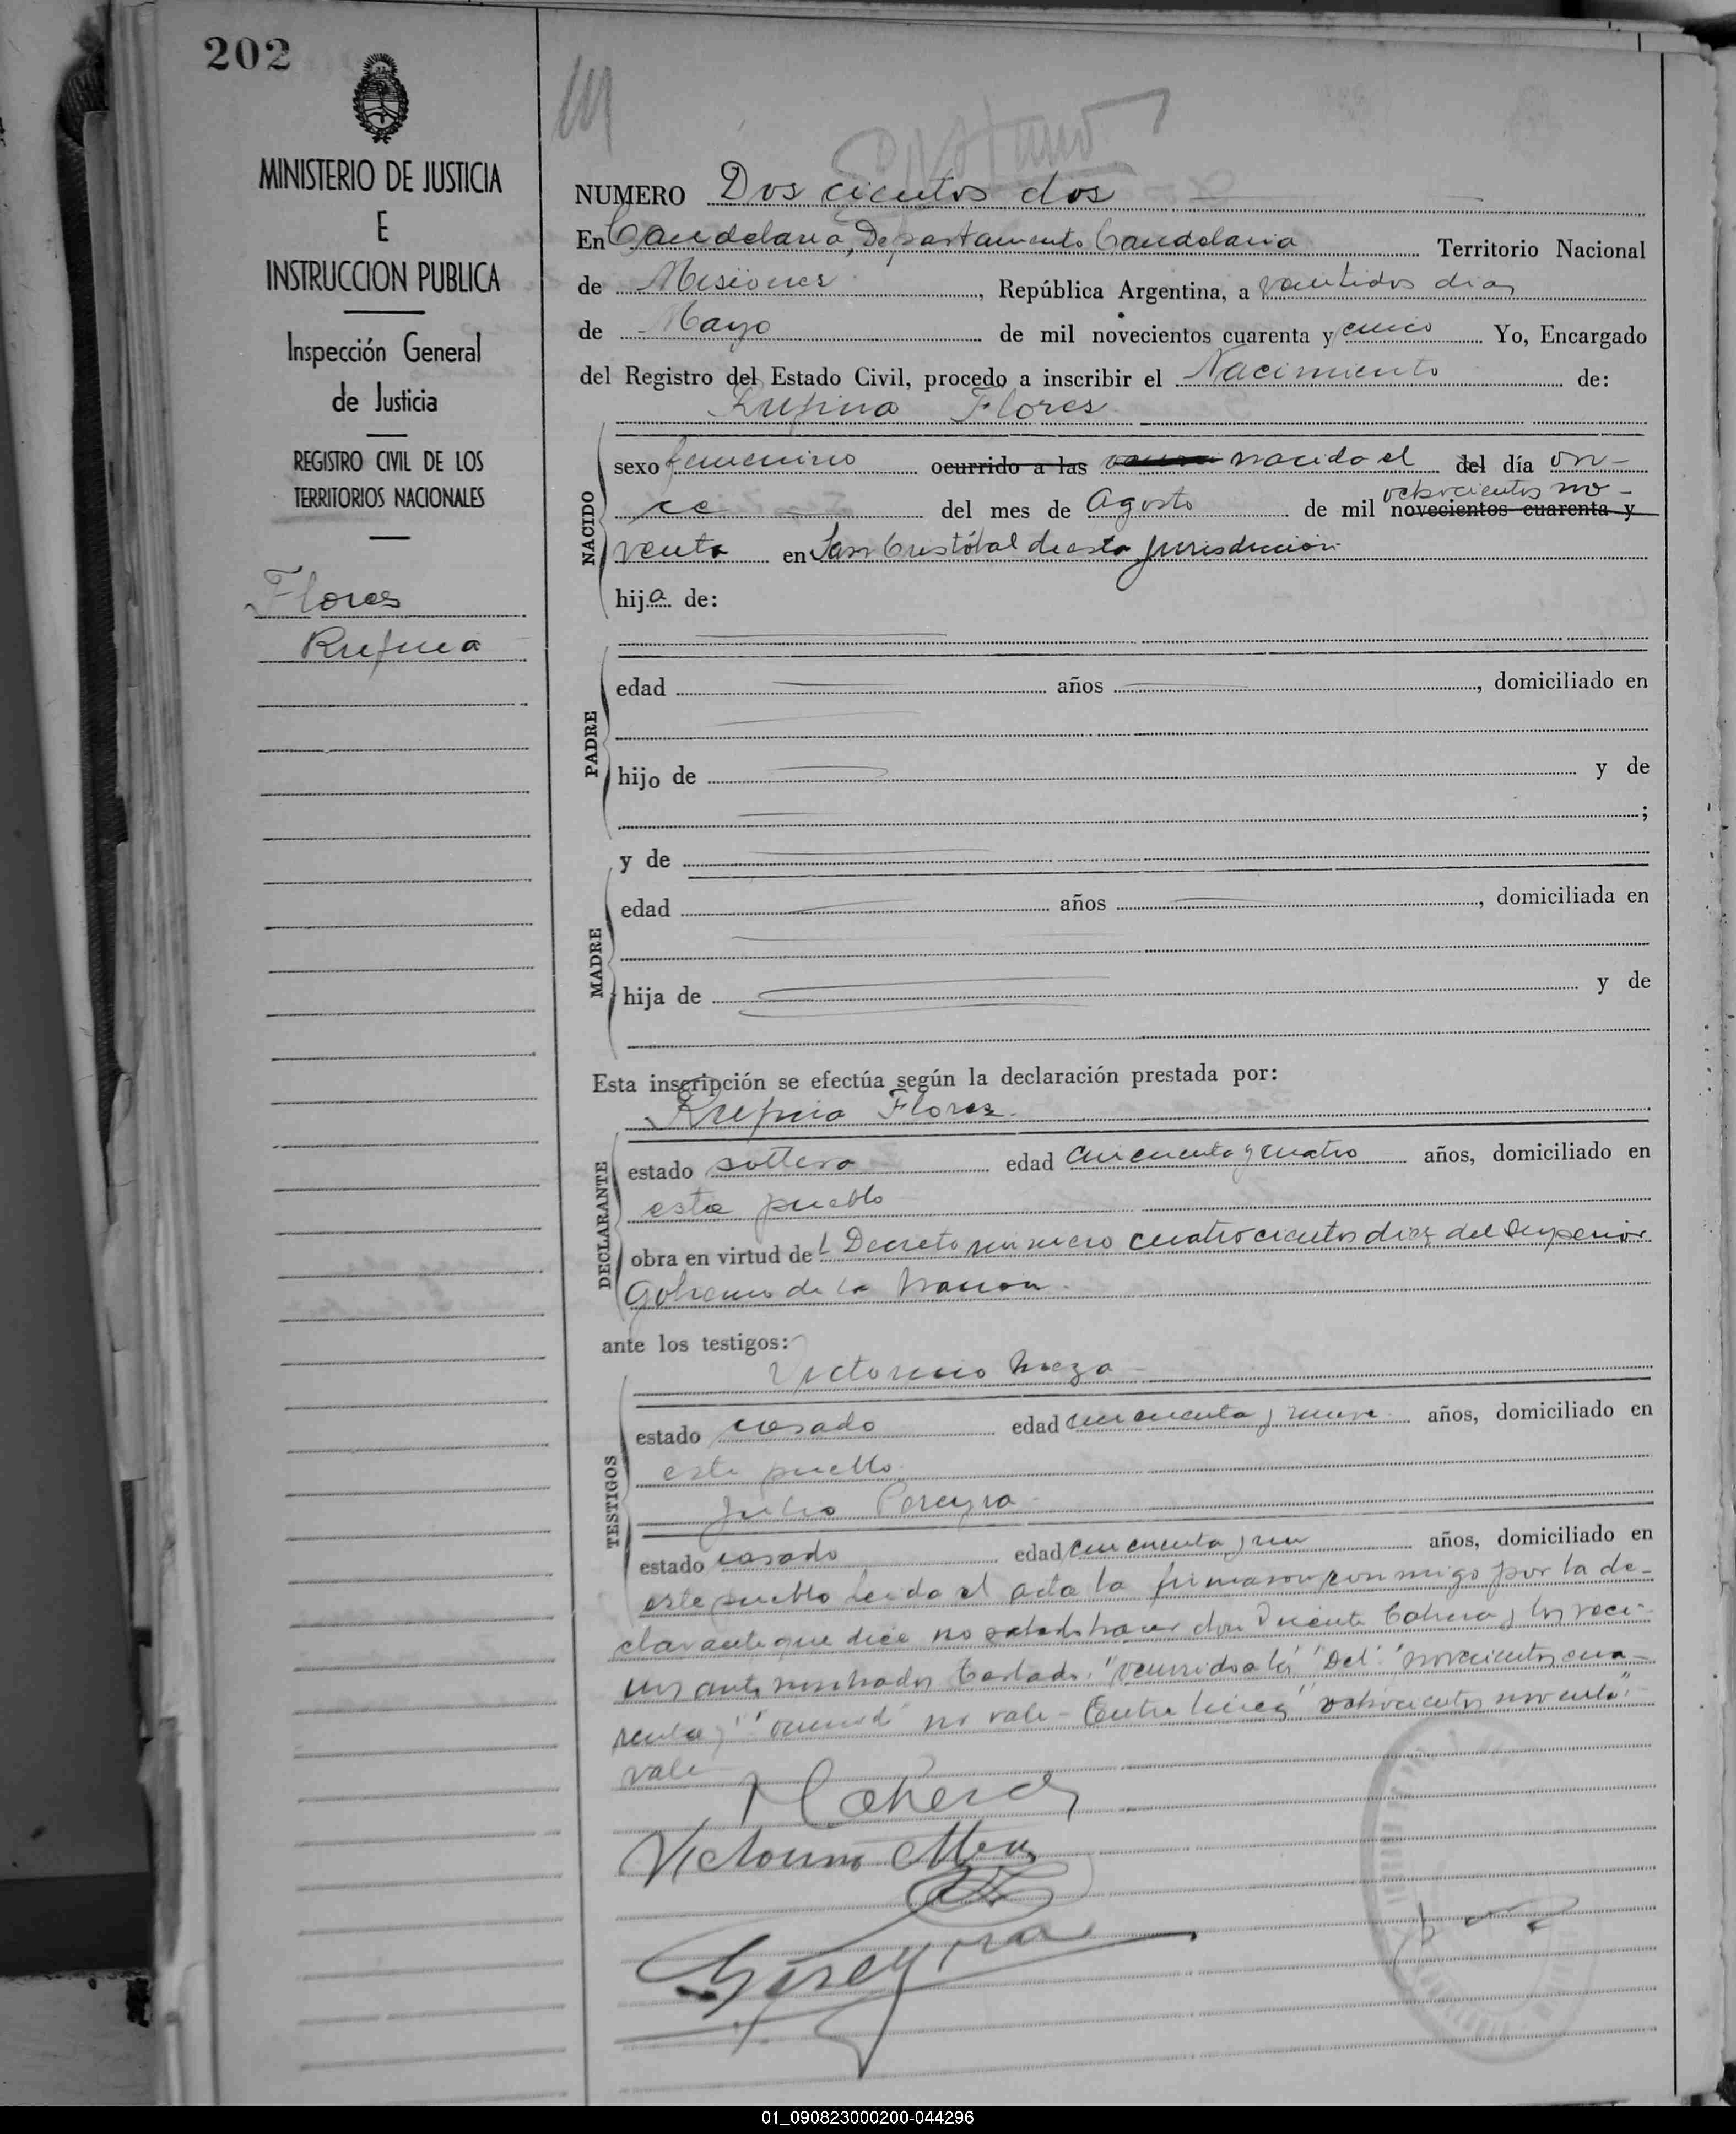 202
MINISTERIO DE JUSTICIA
E
INSTRUCCION PUBLICA
Inspección General
de Justicia
REGISTRO CIVIL DE LOS
TERRITORIOS NACIONALES
Flores
Rufina
NUMERO Doscientos dos
En Candelaria, Departamento Candelaria Territorio Nacional
de Misiones, República Argentina, a veintidos dias
de Mayo de mil novecientos cuarenta y cinco Yo, Encargado
del Registro del Estado Civil, procedo a inscribir el Nacimiento de:
Rufina Flores
NACIDO
sexo femenino ocurrido a las nacido el del día on-
ochocientos no-
ce del mes de Agosto de mil novecientos cuarenta y
venta en San Cristóbal de esta jurisdiccion
hija de:
PADRE
edad años , domiciliado en
hijo de y de
;
y de
MADRE
edad años , domiciliada en
hija de y de
Esta inscripción se efectúa según la declaración prestada por:
Rufina Flores
DECLARANTE
estado soltera edad cincuenta y cuatro años, domiciliado en
este pueblo
obra en virtud del Decreto numero cuatrocientos diez del Superior
Gobierno de la Nacion
ante los testigos:
Victorino Meza
TESTIGOS
estado casado edad cincuenta y nueve años, domiciliado en
este pueblo
Julio Pereyra
estado casado edad cincuenta y un años, domiciliado en
este pueblo Leida el acta la firmaron conmigo por la de-
clarante que dice no hacer don Vicente Cabrera y los
testados "ocurrido a las" "Del" "novecientos cua-
renta y" no vale - Entre lineas "ochocientos noventa"
vale
Victorino Meza
Pereyra
01_090823000200-044296